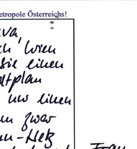 etropole Österreichs!
va,
ch Wien
sie einen
dtplan
nur einen
n zwar
hn-Netz
Frau